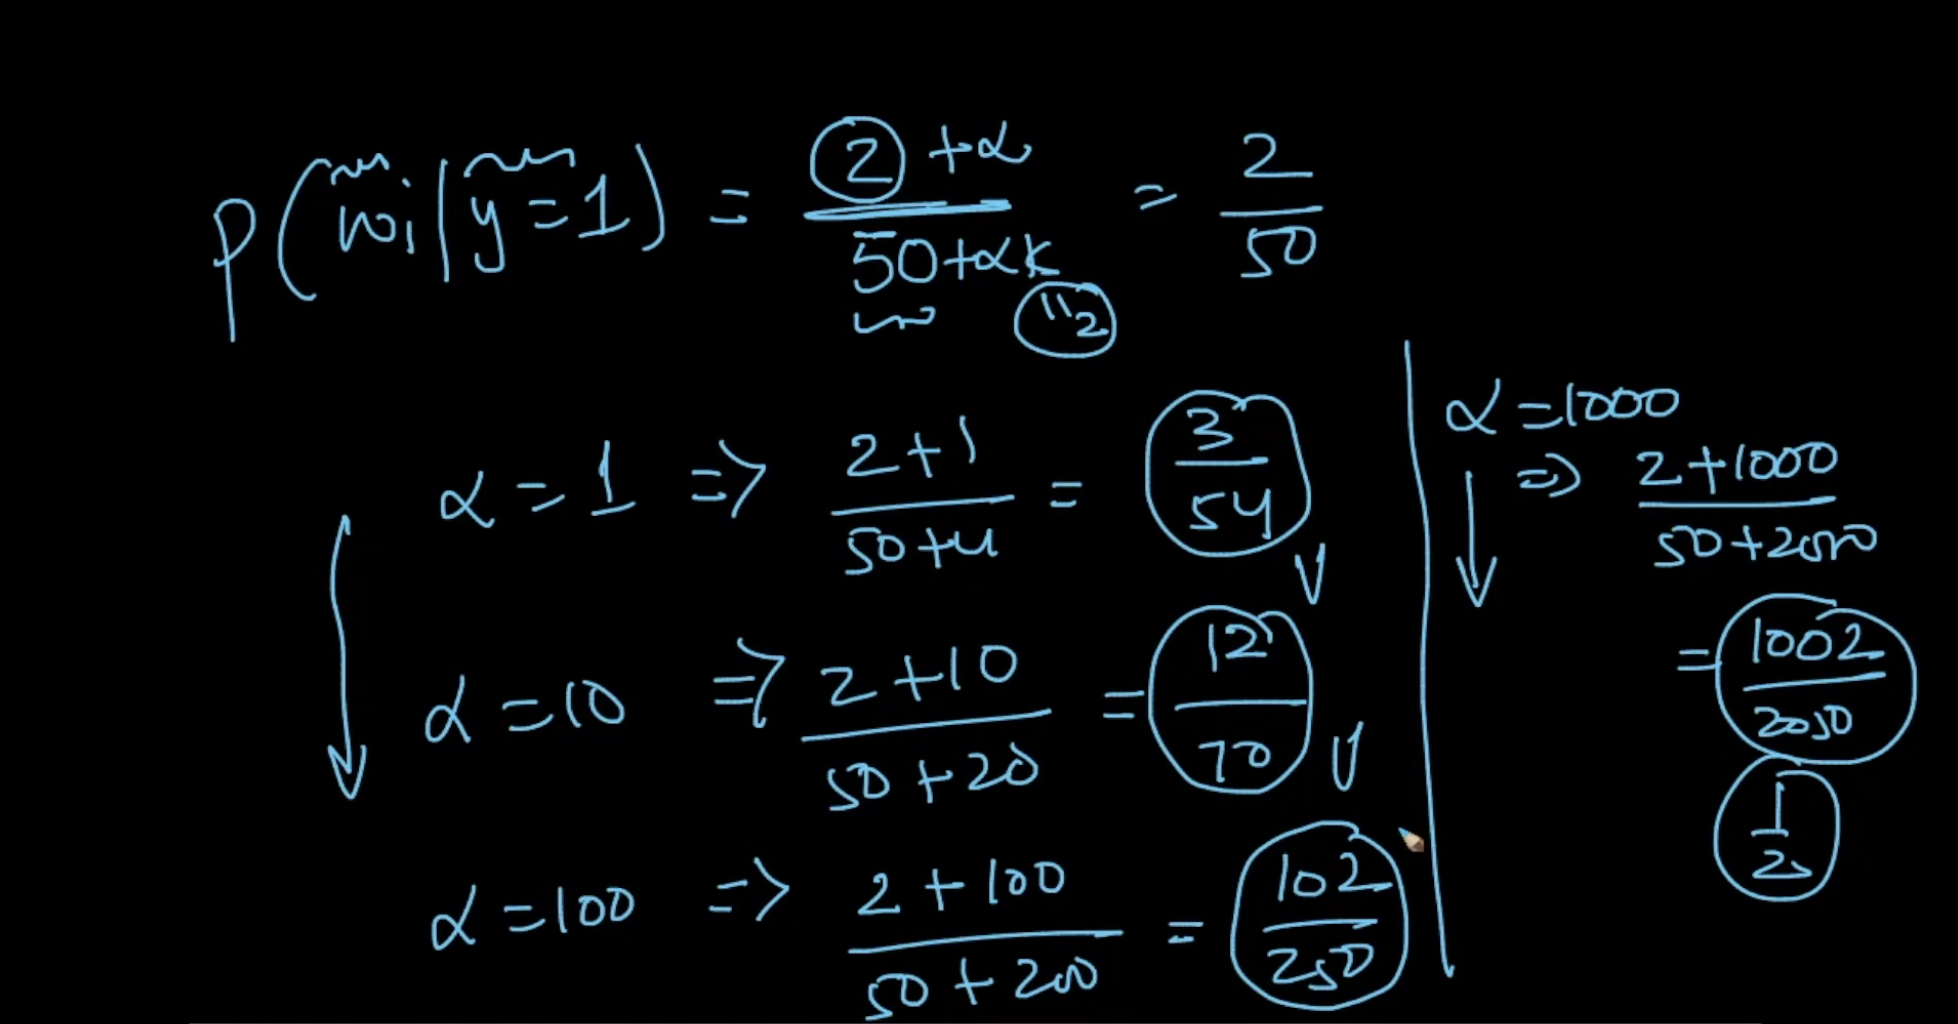 P(wi|y=1) = (2 + α)/(50 + αk) = 2/50
"2
α = 1 => (2+1)/(50+4) = 3/54
α = 10 => (2+10)/(50+20) = 12/70
α = 100 => (2+100)/(50+200) = 102/250
α = 1000
=> (2+1000)/(50+2000)
= 1002/2050
1/2